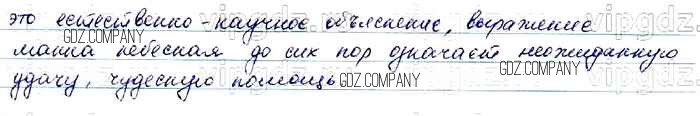 это естественно-научное объяснение, выражение
манна небесная до сих пор означает неожиданную
удачу, чудесную помощь
GDZ.COMPANY GDZ.COMPANY
GDZ.COMPANY GDZ.COMPANY